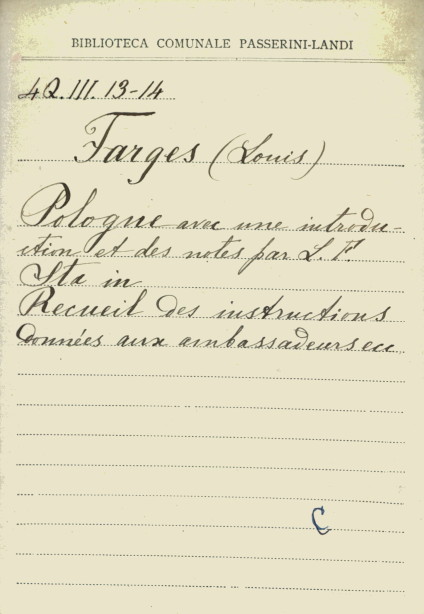 BIBLIOTECA COMUNALE PASSERINI-LANDI
4Q.III.13-14
Farges (Louis)
Pologne avec une introdu-
ction et des notes par L. F.
Sta in
Recueil des instructions
données aux ambassadeurs ecc
C